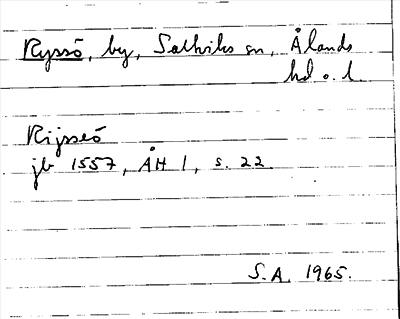 Ryssö, by, Saltviks sn, Ålands
hd o. l
Rijsseö
jb 1557, ÅH 1, s. 22.
S.A. 1965.